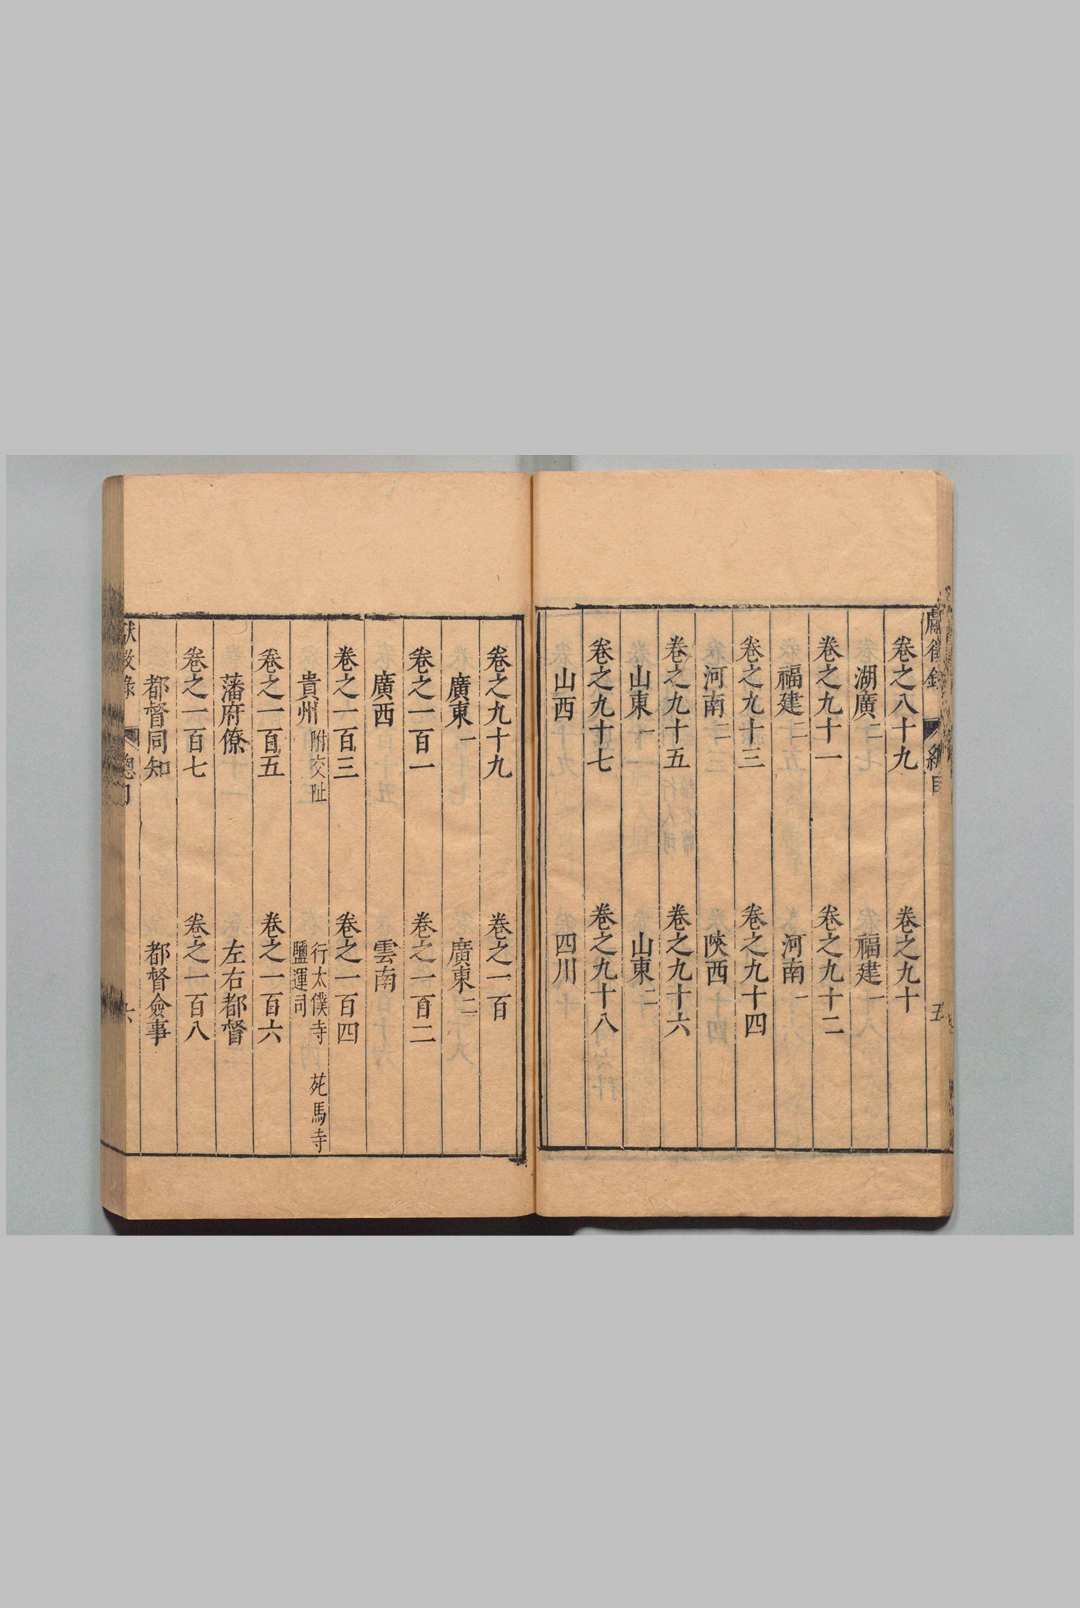 卷之八十九 卷之九十
湖廣二 福建一
卷之九十一 卷之九十二
福建二 河南一
卷之九十三 卷之九十四
河南二 陝西
卷之九十五 卷之九十六
山東一 山東二
卷之九十七 卷之九十八
山西 四川
五
卷之九十九 卷之一百
廣東一 廣東二
卷之一百一 卷之一百二
廣西 雲南
卷之一百三 卷之一百四
貴州附交趾 行太僕寺 苑馬寺
鹽運司
卷之一百五 卷之一百六
藩府僚 左右都督
卷之一百七 卷之一百八
都督同知 都督僉事
總目
六